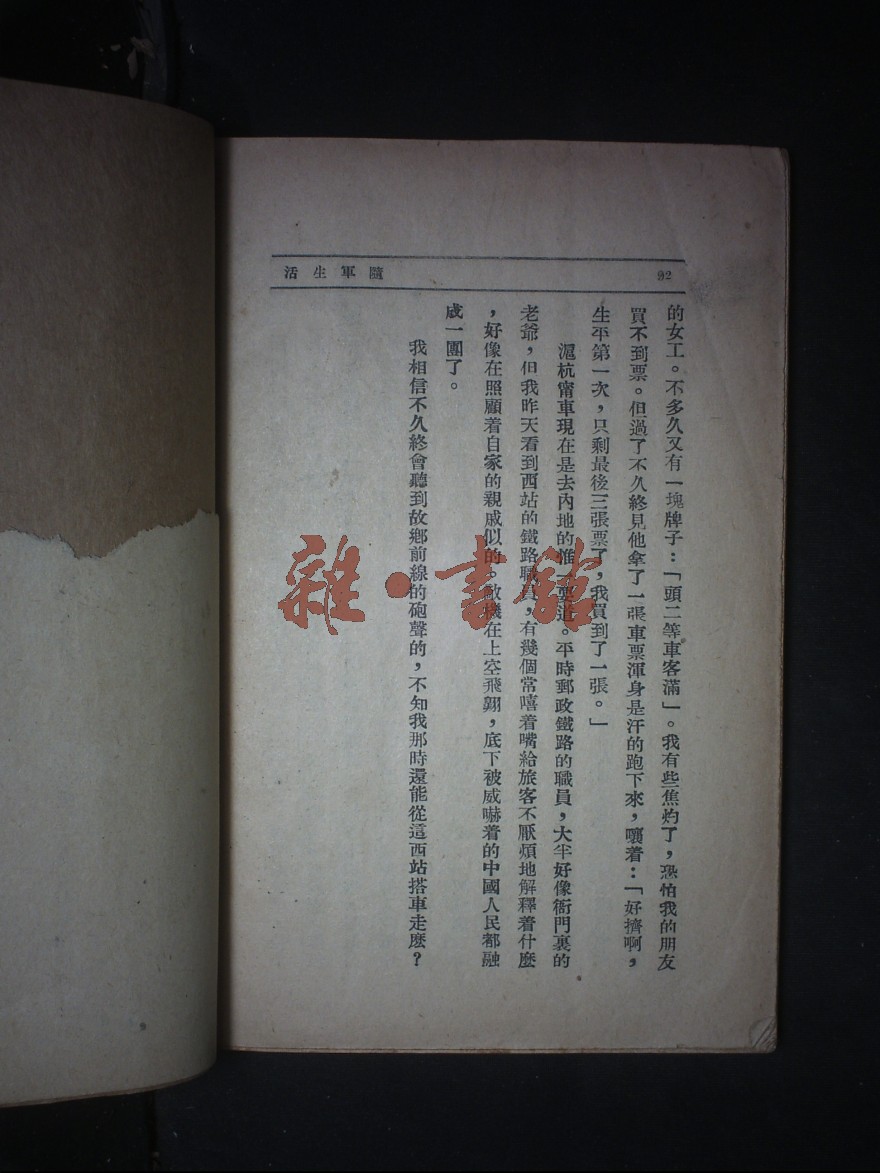 隨軍生活
92
的女工。不多久又有一塊牌子：「頭二等車客滿」。我有些焦灼了，恐怕我的朋友
買不到票。但過了不久終見他拿了一張車票渾身是汗的跑下來，嚷着：「好擠啊，
生平第一次，只剩最後三張票了，我買到了一張。」
滬杭甯車現在是去內地的惟一要道。平時郵政鐵路的職員，大半好像衙門裏的
老爺，但我昨天看到西站的鐵路職員，有幾個常嘻着嘴給旅客不厭煩地解釋着什麼
，好像在照顧着自家的親戚似的。敵機在上空飛翱，底下被威嚇着的中國人民都融
成一團了。
我相信不久終會聽到故鄉前線的砲聲的，不知我那時還能從這西站搭車走麽？
雜·書館